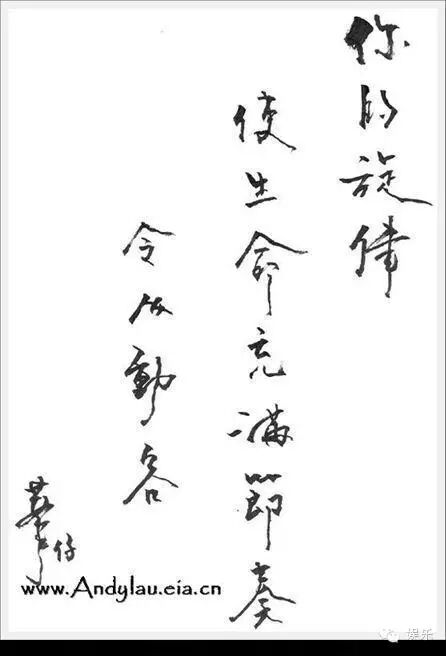 你的旋律
使生命充滿節奏
令動容
華仔
www.Andylau.eia.cn
娱乐